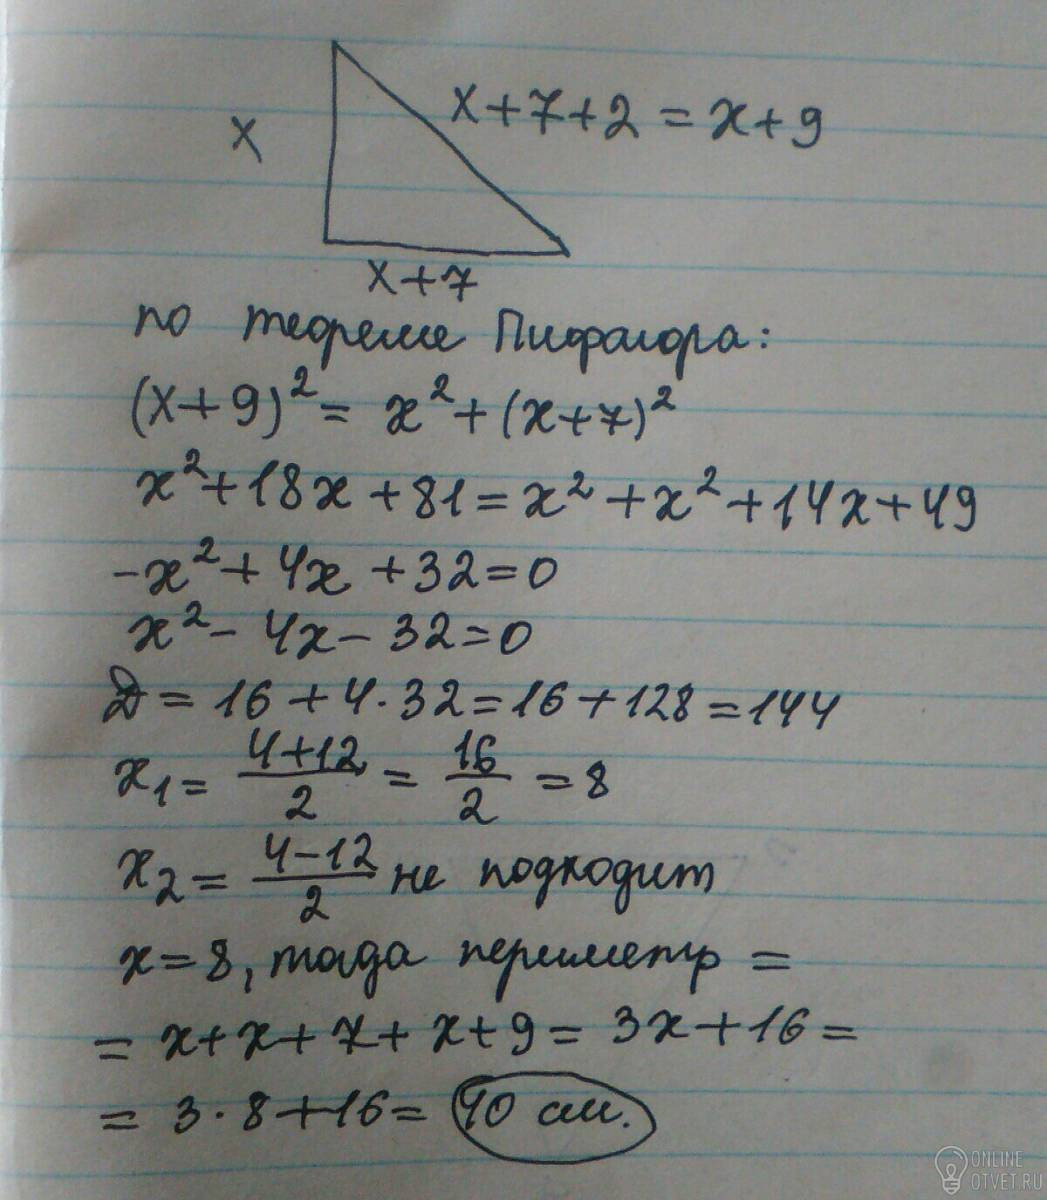 x
x+7+2 = x+9
x+7
по теореме Пифагора:
(x+9)² = x² + (x+7)²
x² + 18x + 81 = x² + x² + 14x + 49
-x² + 4x + 32 = 0
x² - 4x - 32 = 0
D = 16 + 4·32 = 16 + 128 = 144
x₁ = (4+12)/2 = 16/2 = 8
x₂ = (4-12)/2 не подходит
x = 8, тогда периметр =
= x + x + 7 + x + 9 = 3x + 16 =
= 3·8 + 16 = 40 см.
ONLINE
OTVET.RU